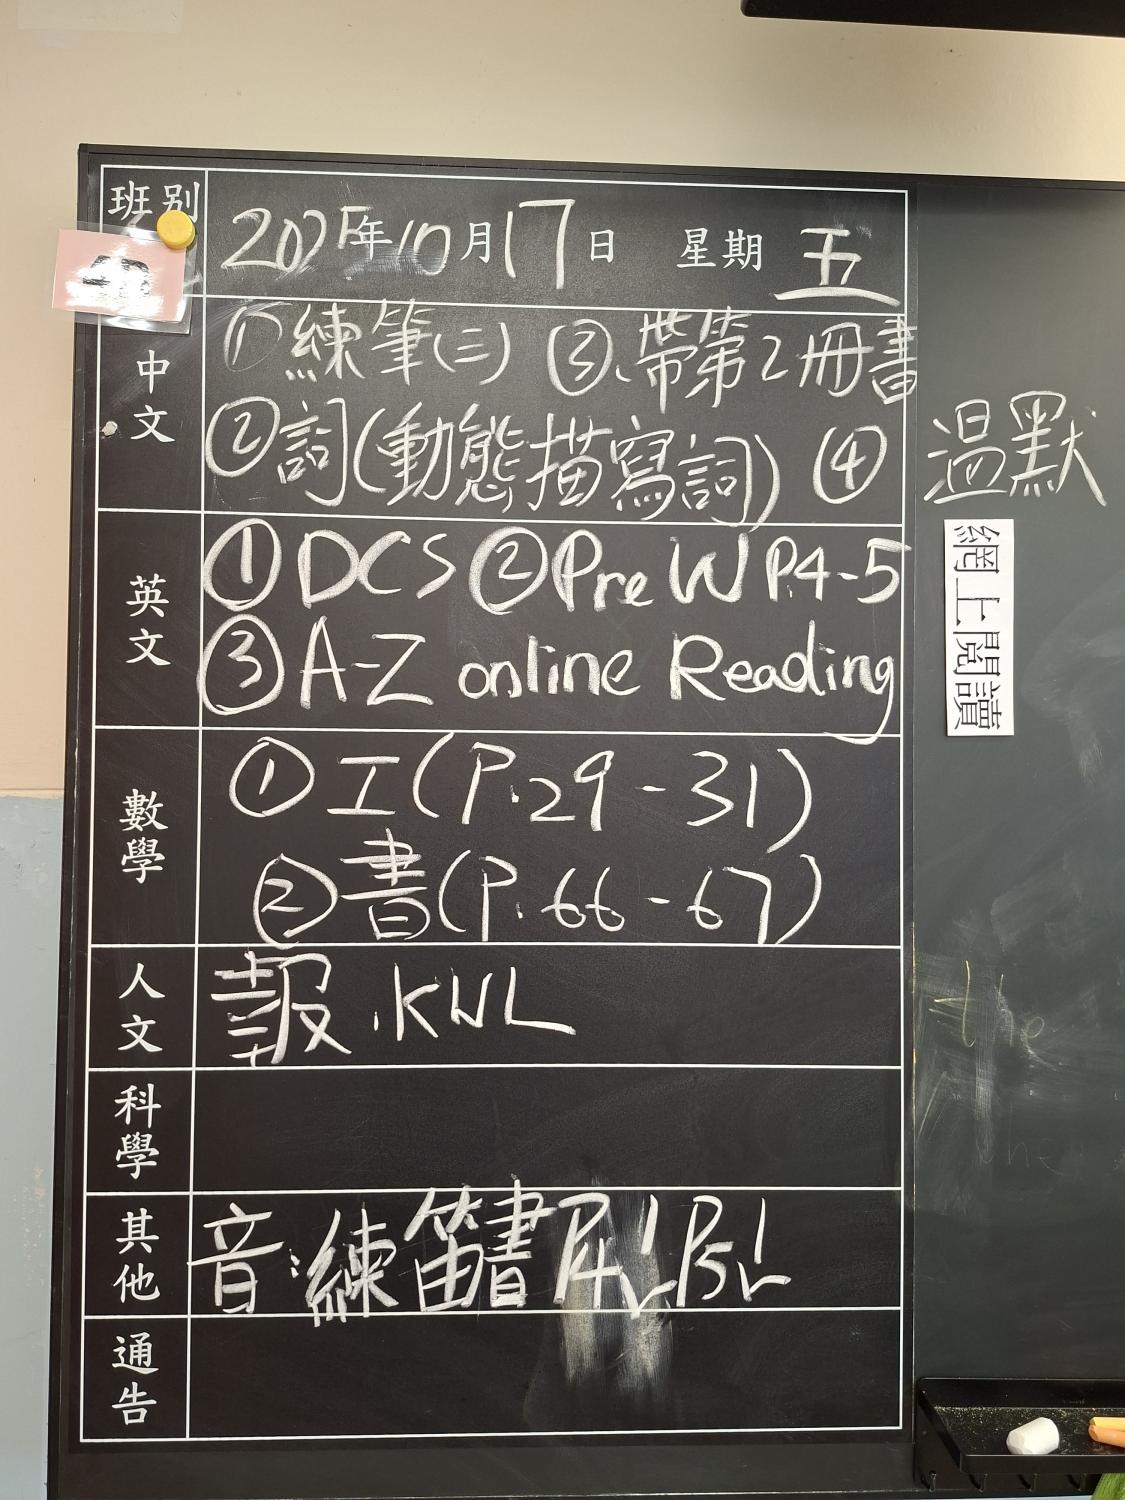 班別
2025年10月17日 星期 五
中文
① 練筆(三) ③、帶第2冊書
② 詞(動態描寫詞) ④ 温默
網上閱讀
英文
① DCS ② Pre W P.4-5
③ A-Z online Reading
數學
① 工(P.29-31)
② 書(P.66-67)
人文
報.KWL
科學
其他
音:練笛書P4 P5
通告